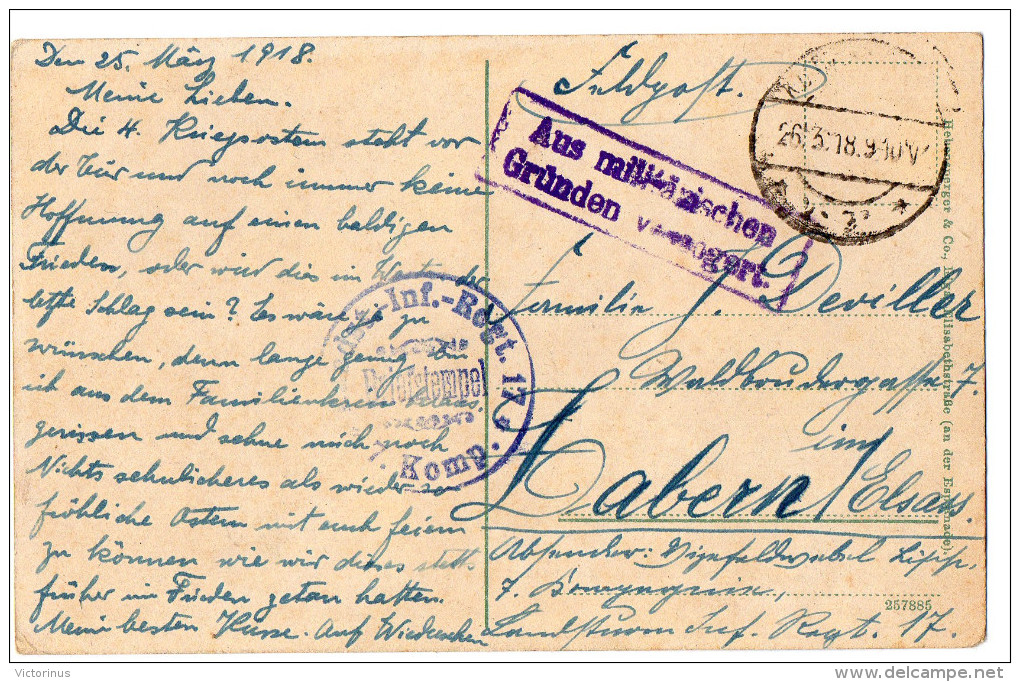 Den 25. März 1918.
Meine Lieben.
Die 4. Kriegsostern steht vor
der Tür und noch immer keine
Hoffnung auf einen baldigen
Frieden, oder wird dies im West. der
letzte Schlag sein? Es wäre ja zu
wünschen, denn lange genug bin
ich aus dem Familienkreis
gerissen und sehne mich noch
Nichts sehnlicheres als wieder so
fröhliche Ostern mit euch feiern
zu können wie wir dieses
früher im Frieden getan hatten.
Meine besten Küsse. Auf Wiedersehen
Feldpost.
Aus militärischen
Gründen verzögert.
26.3.18.9-10V
Familie J. Deviller
Waldbrudergasse 7.
in
Zabern/Elsass.
Absender: Vizefeldwebel
7. Kompagnie,
Landsturm Inf. Regt. 17.
Inf.-Regt. 17
Briefstempel
Komp.
& Co., (an der Esplanade).
257885
Victorinus
delcampe.net